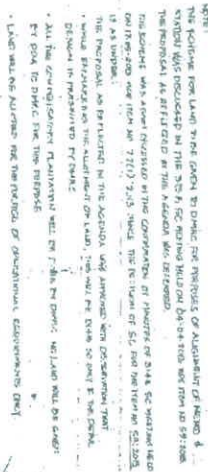 NOTE:
THE SCHEME FOR LAND TO BE GIVEN TO DMRC FOR PURPOSES OF ALIGNMENT OF METRO &
STATION WAS DISCUSSED IN THE SC MEETING HELD ON 04-04-2013 VIDE ITEM NO 59:2013
THE PROPOSAL AS REFLECTED IN THE AGENDA WAS DEFERRED.
THE SCHEME WAS AGAIN DISCUSSED IN THE CONFIRMATION OF MINUTES OF SC MEETING HELD
ON VIDE ITEM NO HENCE THE DECISION OF SC FOR THE ITEM NO 59:2013
IS AS UNDER:
THE PROPOSAL AS REFLECTED IN THE AGENDA WAS APPROVED WITH OBSERVATION THAT
WHILE THE ALIGNMENT OF LAND, THIS WILL BE DONE SO ONLY IF THE DETAIL
DESIGN IS PRESENTED BY DMRC.
• ALL THE COMPENSATORY PLANTATION WILL BE DONE BY DMRC. NO LAND WILL BE GIVEN
BY DDA TO DMRC FOR THIS PURPOSE
• LAND WILL BE ALLOTTED FOR THE PURPOSE OF OPERATIONAL REQUIREMENTS ONLY